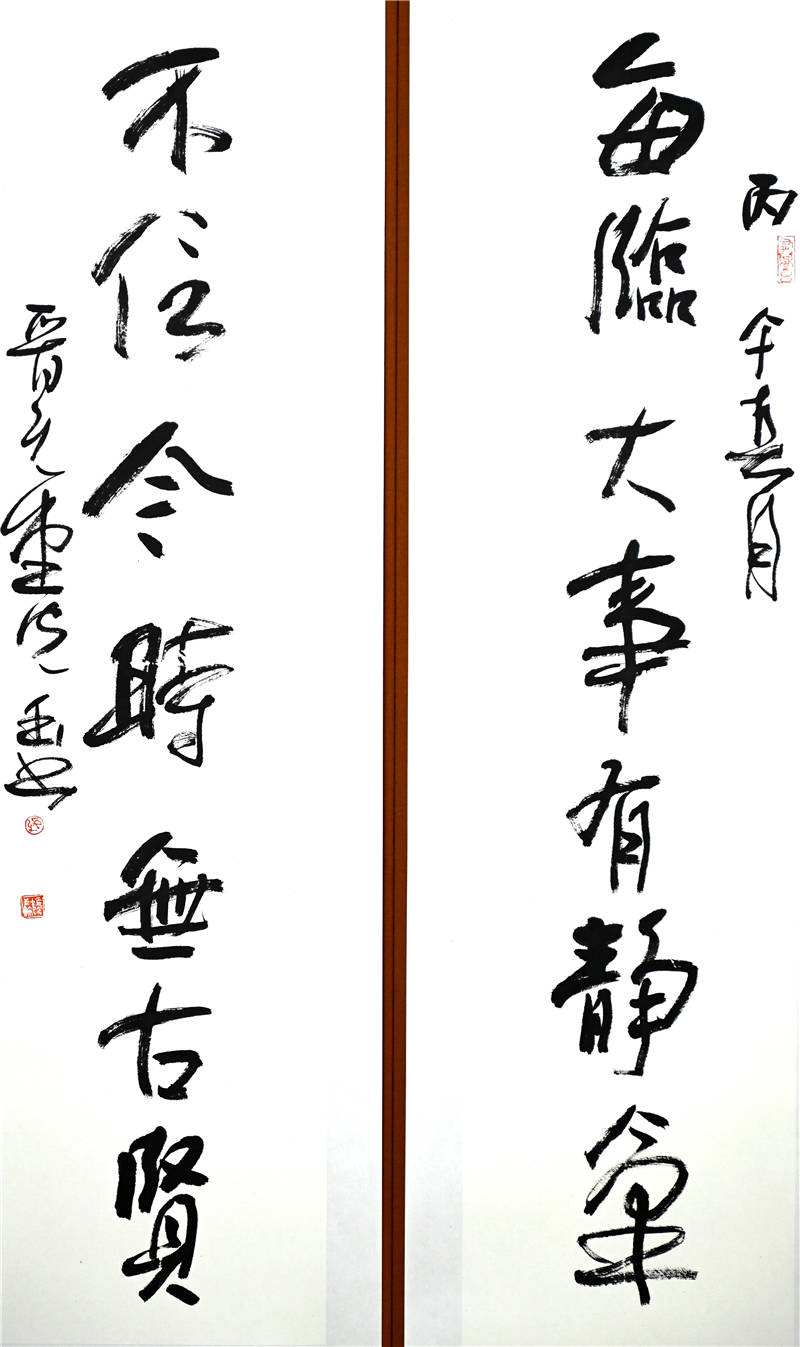 丙午月
每臨大事有靜氣
不信今時無古賢